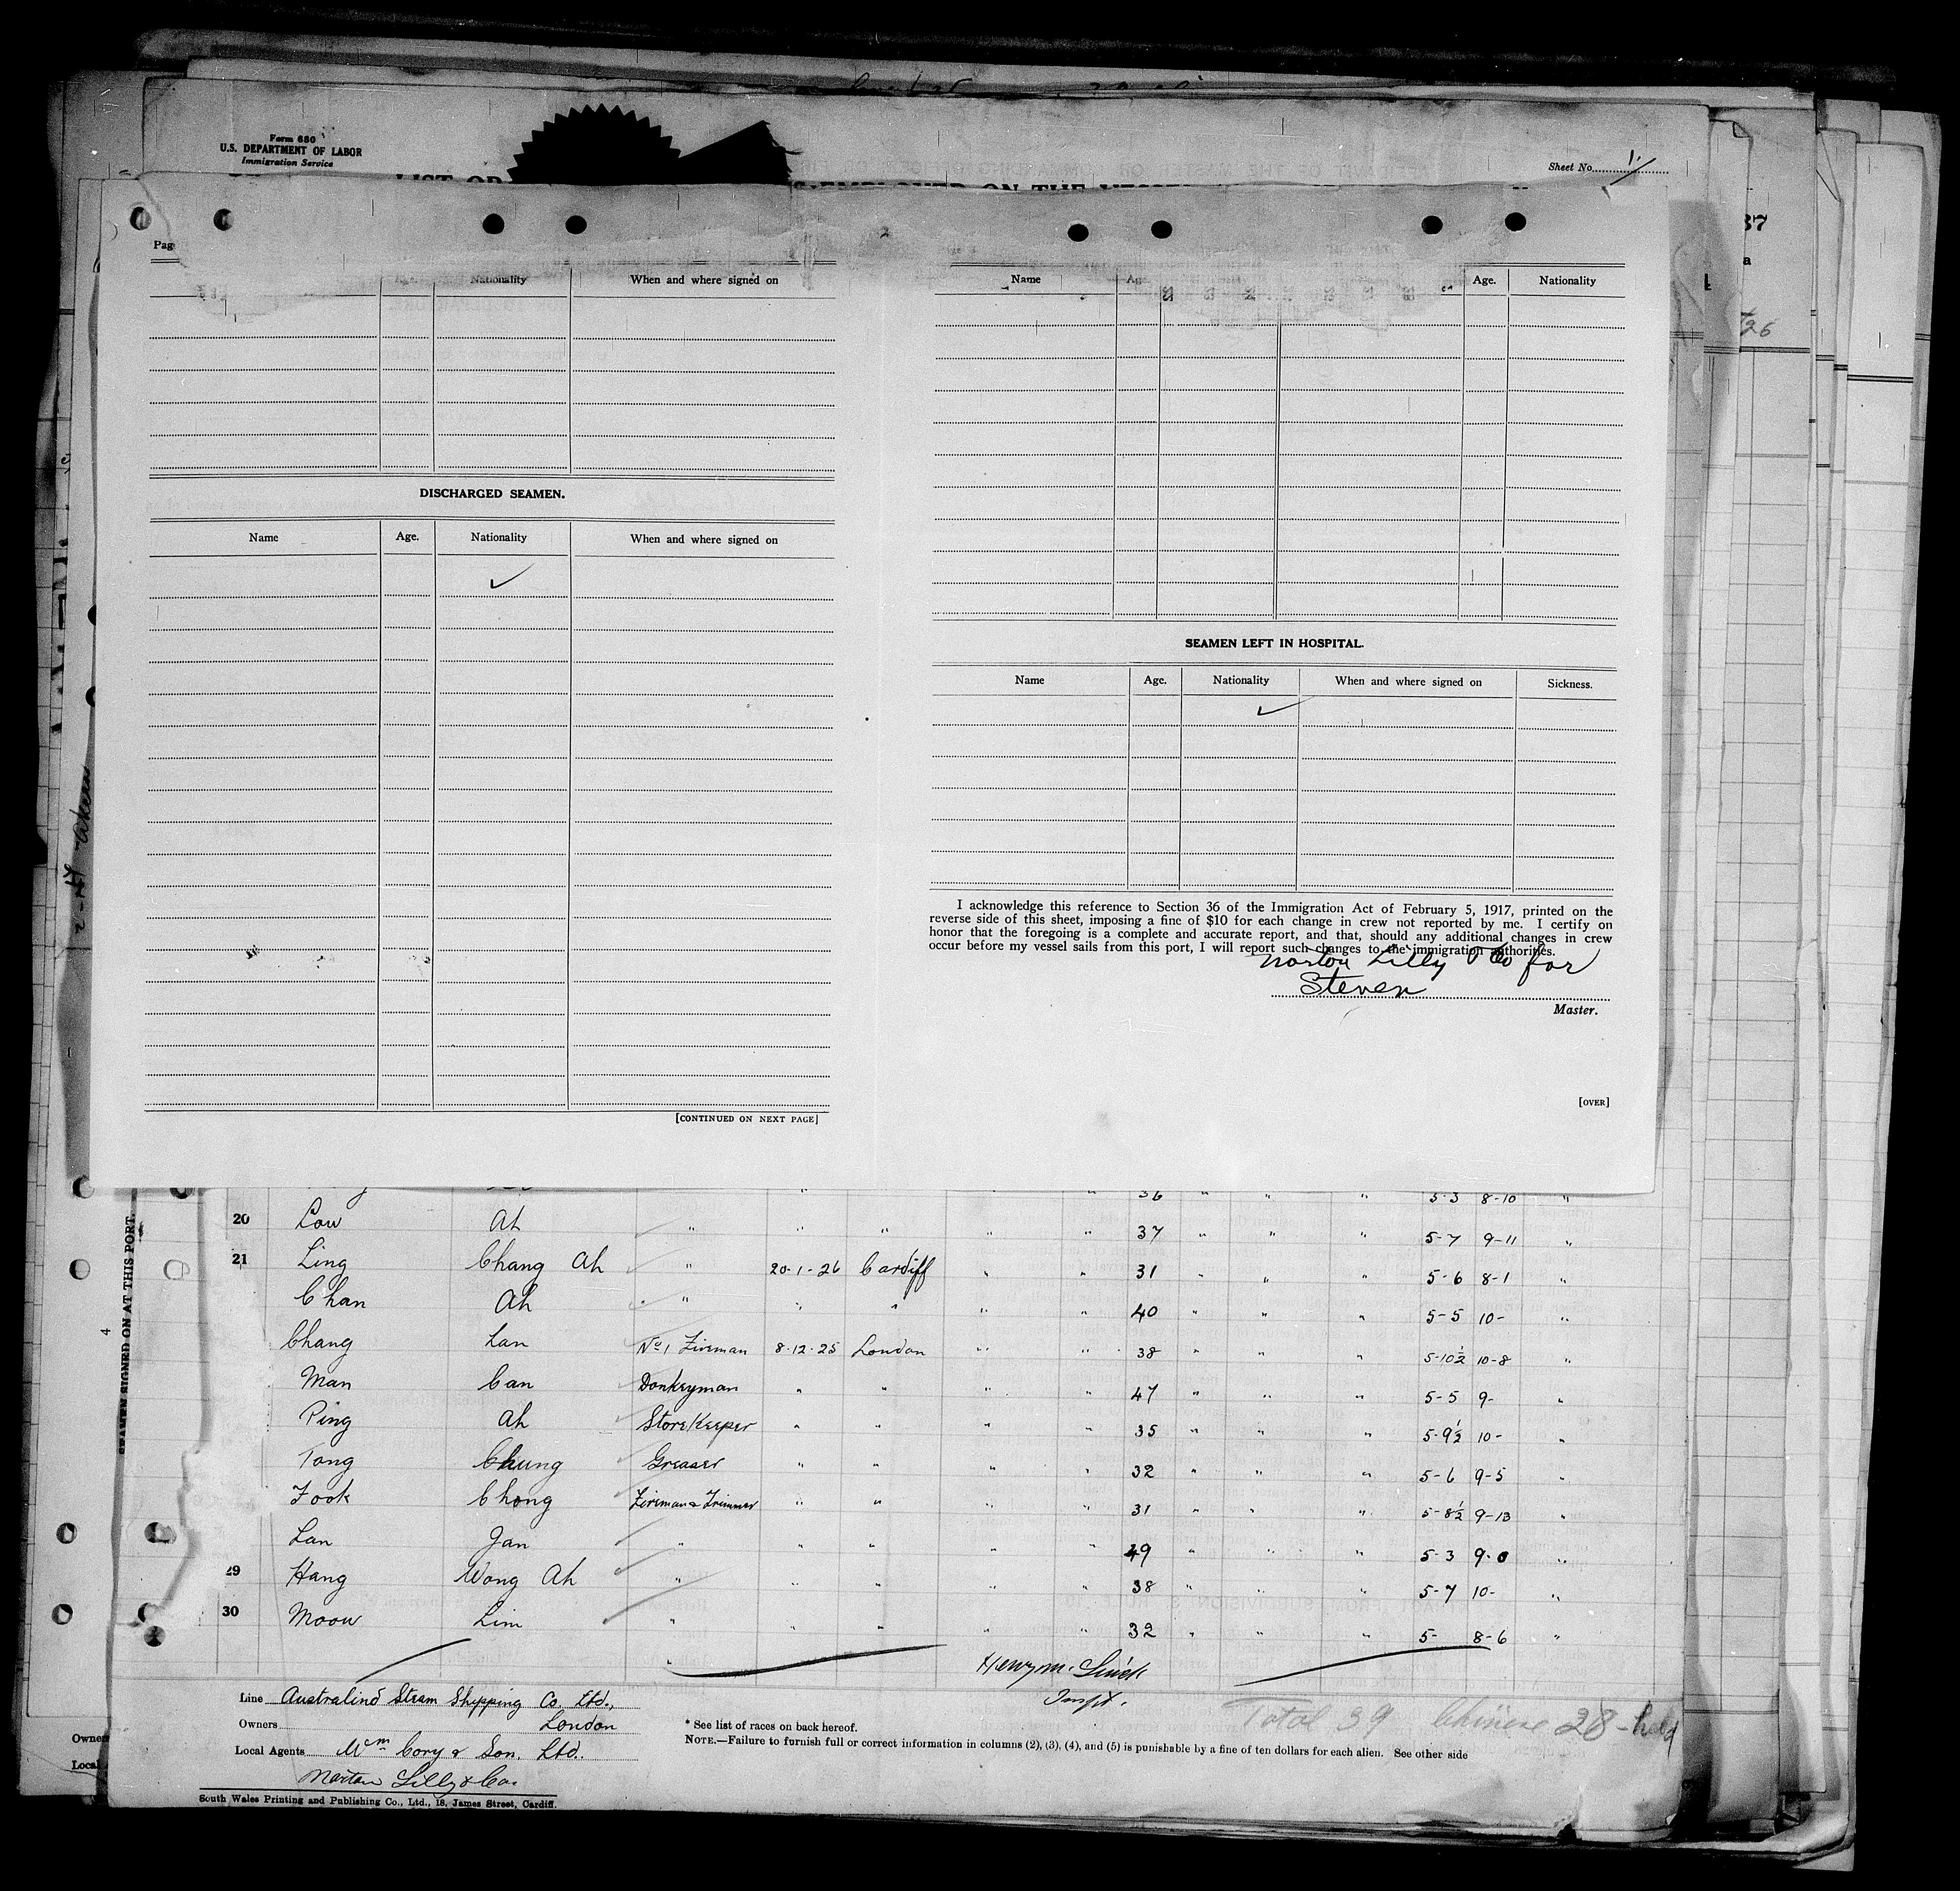 Form 680
U.S. DEPARTMENT OF LABOR
Immigration Service
Sheet No. 1
EMPLOYED ON THE VESSEL
37
a
26
Pag
Age. Nationality When and where signed on
DISCHARGED SEAMEN.
Name Age. Nationality When and where signed on
✓
[CONTINUED ON NEXT PAGE]
Name Age. Nationality
SEAMEN LEFT IN HOSPITAL.
Name Age. Nationality When and where signed on Sickness.
✓
I acknowledge this reference to Section 36 of the Immigration Act of February 5, 1917, printed on the
reverse side of this sheet, imposing a fine of $10 for each change in crew not reported by me. I certify on
honor that the foregoing is a complete and accurate report, and that, should any additional changes in crew
occur before my vessel sails from this port, I will report such changes to the immigration authorities.
Norton Lilly & Co for
Steven
Master.
[OVER]
SEAMEN SIGNED ON AT THIS PORT.
4
" " " 36 " " " 5-3 8-10 "
20 Low Ah " " " " " 37 " " " 5-7 9-11 "
21 Ling Chang Ah " 20-1-26 Cardiff " " 31 " " " 5-6 8-1 "
Chan Ah " " " " " 40 " " " 5-5 10- "
Chang Lan No 1 Fireman 8.12.25 London " " 38 " " " 5-10½ 10-8 "
Man Can Donkeyman " " " " 47 " " " 5-5 9- "
Ping Ah StoreKeeper " " " " 35 " " " 5-9½ 10- "
Tong Chung Greaser " " " " 32 " " " 5-6 9-5 "
Fook Chong Fireman & Trimmer " " " " 31 " " " 5-8½ 9-13 "
Lan Jan " " " " " 49 " " " 5-3 9-0 "
29 Hang Wong Ah " " " " " 38 " " " 5-7 10- "
30 Moow Lim " " " " " 32 " " " 5- 8-6 "
Henry M. Linck
Inspt.
Line Australind Steam Shipping Co. Ltd.,
Owners London
Local Agents Wm Cory & Son. Ltd.
Norton Lilly & Co.
Total 39 Chinese 28 - held
* See list of races on back hereof.
NOTE.—Failure to furnish full or correct information in columns (2), (3), (4), and (5) is punishable by a fine of ten dollars for each alien. See other side
South Wales Printing and Publishing Co., Ltd., 18, James Street, Cardiff.
Owners
Local